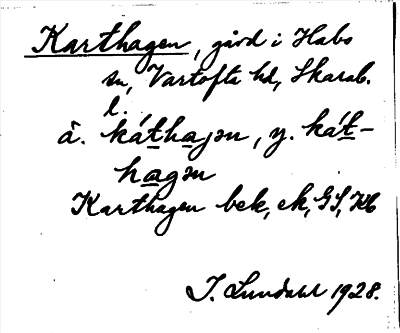 Karthagen, gård i Habo
sn, Vartofta hd, Skarab.
l.
ä. káthaȷən, y. kát-
hagən
Karthagen bek, ek, GS, Kb
I. Lundahl 1928.